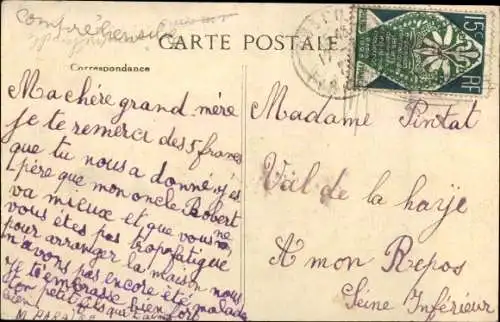 comprehensible
CARTE POSTALE
Correspondance
15c RF
Ma chère grand-mère
je te remerci des 5 francs
que tu nous a donné j'es
père que mon oncle Robert
va mieux et que vous ne
vous étes pas trop fatigue
pour arranger la maison nous
n'avons pas encore été malade
Je t'embrasse bien fort
ton petit fils qui t'aime
bien M. PARA
Madame Pintat
Val de la haye
A mon Repos
Seine Inférieur